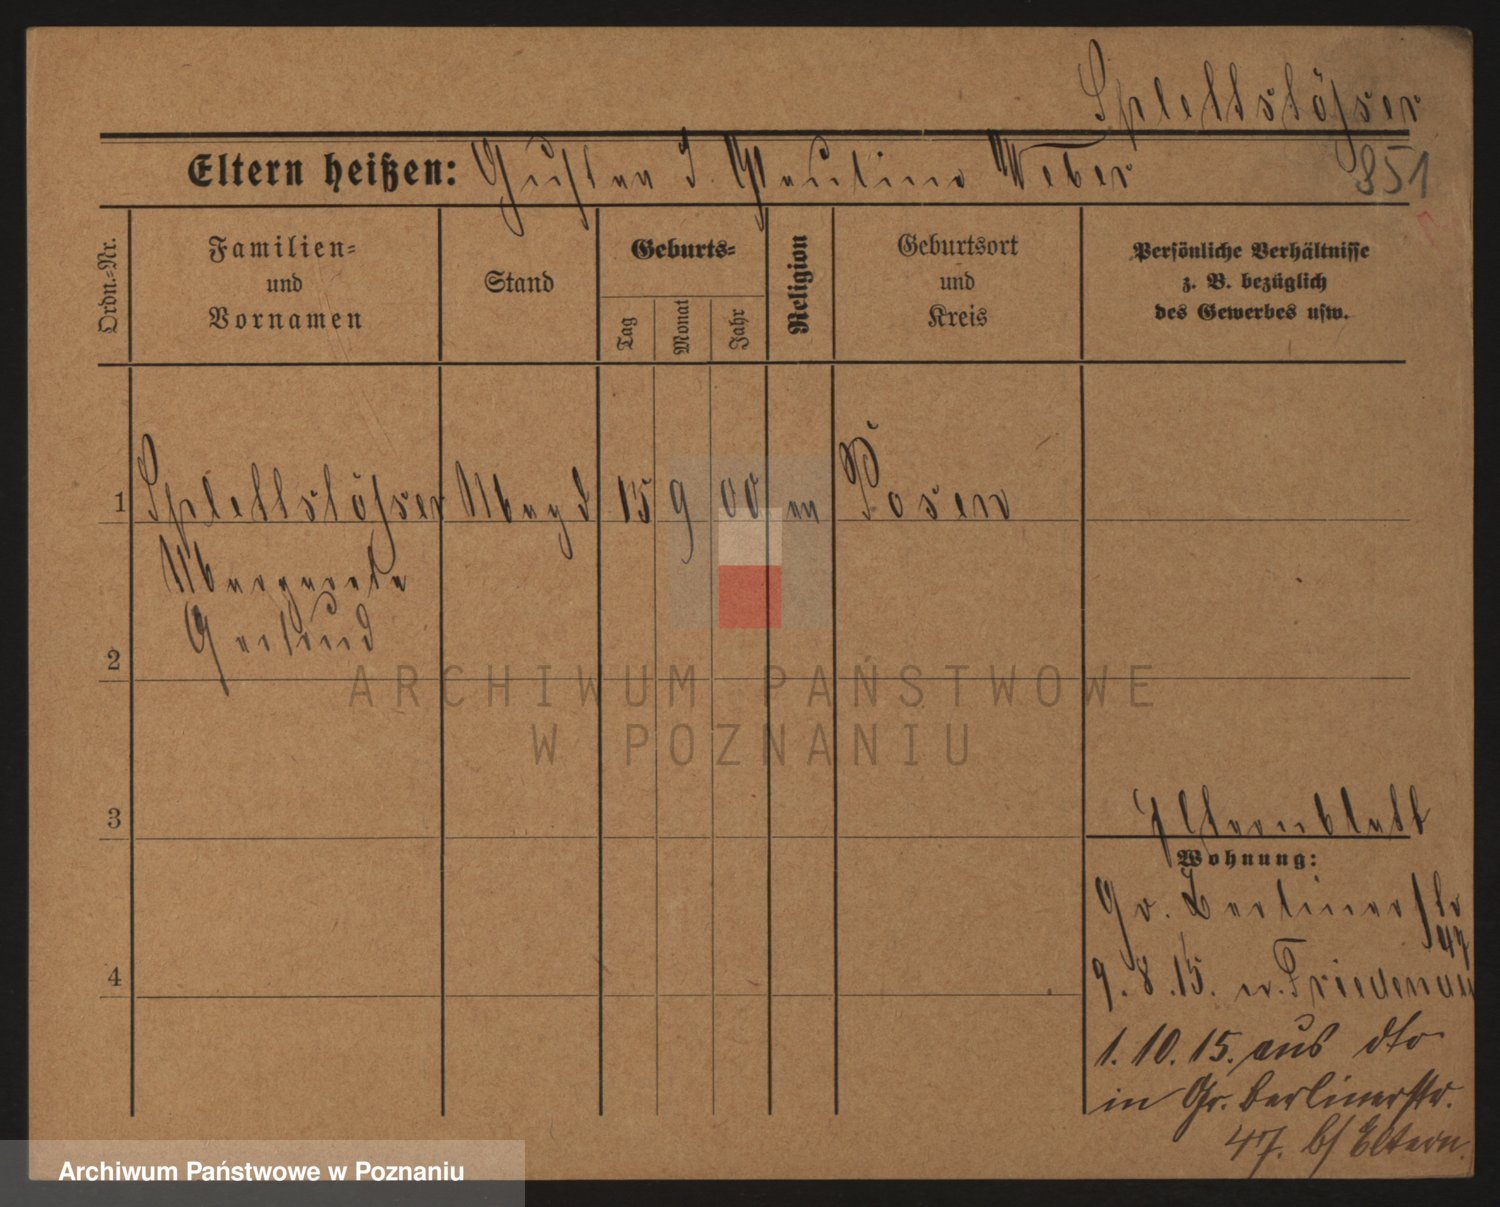 Splettstößer
Eltern heißen: Gustav u. Pauline Weber
851
Ordn.-Nr.
Familien-
und
Vornamen
Stand
Geburts-
Tag
Monat
Jahr
Religion
Geburtsort
und
Kreis
Persönliche Verhältnisse
z. B. bezüglich
des Gewerbes usw.
1 Splettstößer Magd 15 9 00 ev Posen
Margarete
Gertrud
2
ARCHIWUM PAŃSTWOWE
W POZNANIU
3
Elternblatt
Wohnung:
Gr. Berlinerstr
47
4
9.8.15. n. Friedenau
1.10.15. aus dto
in Gr. Berlinerstr.
47. b/ Eltern.
Archiwum Państwowe w Poznaniu